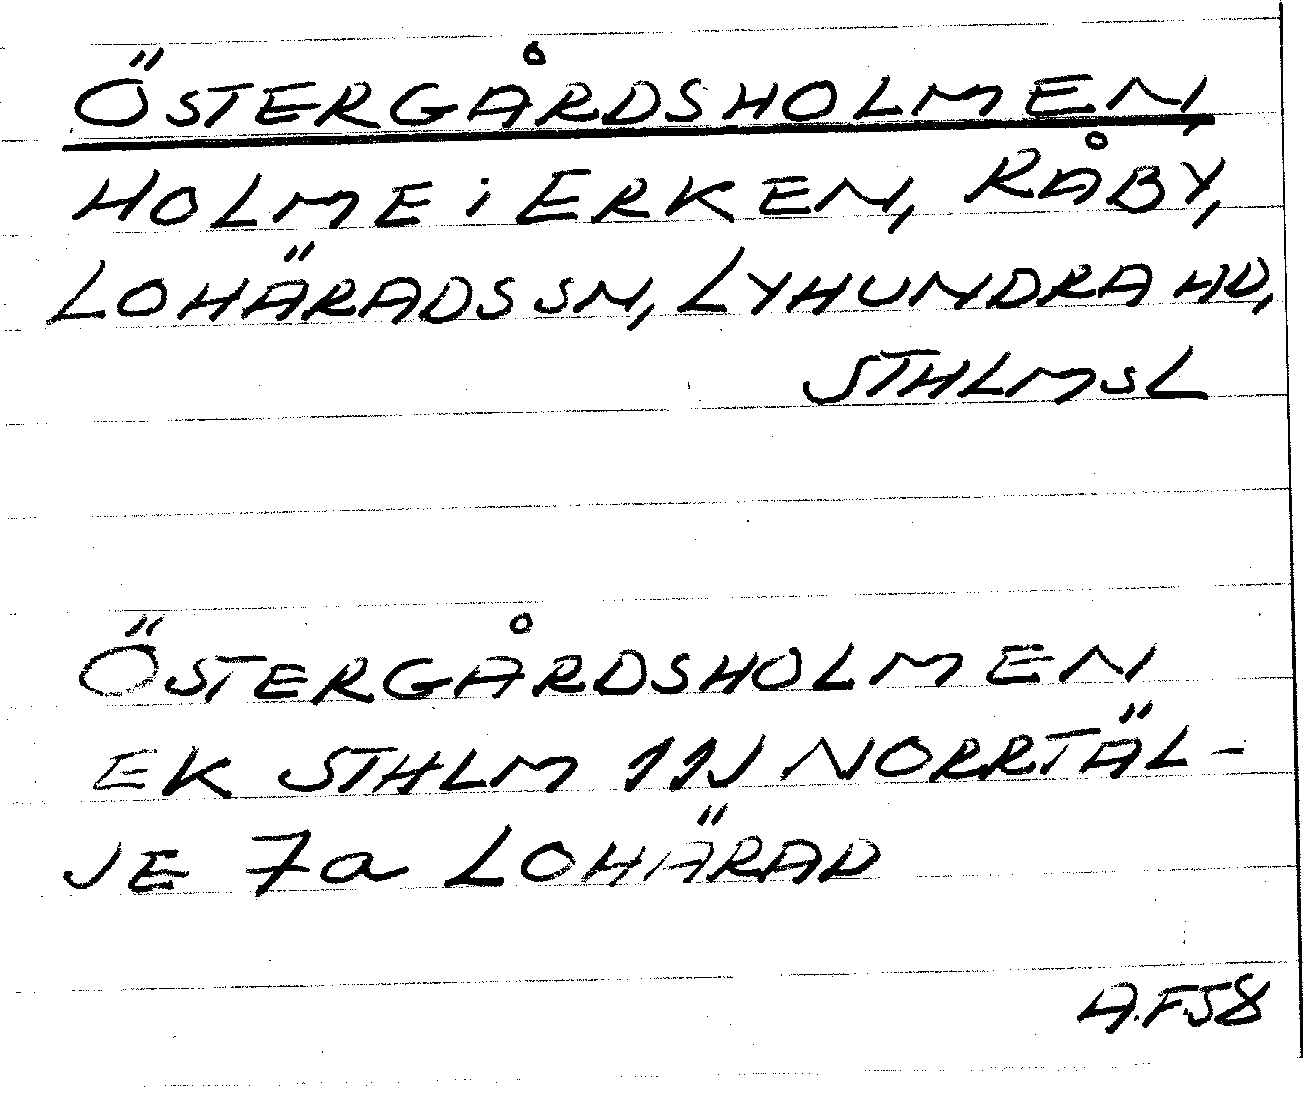 ÖSTERGÅRDSHOLMEN,
HOLME i ERKEN, RÅBY,
LOHÄRADS SN, LYHUNDRA HD,
STHLMSL
ÖSTERGÅRDSHOLMEN
EK STHLM 11J NORRTÄL-
JE 7a LOHÄRAD
A.F.58